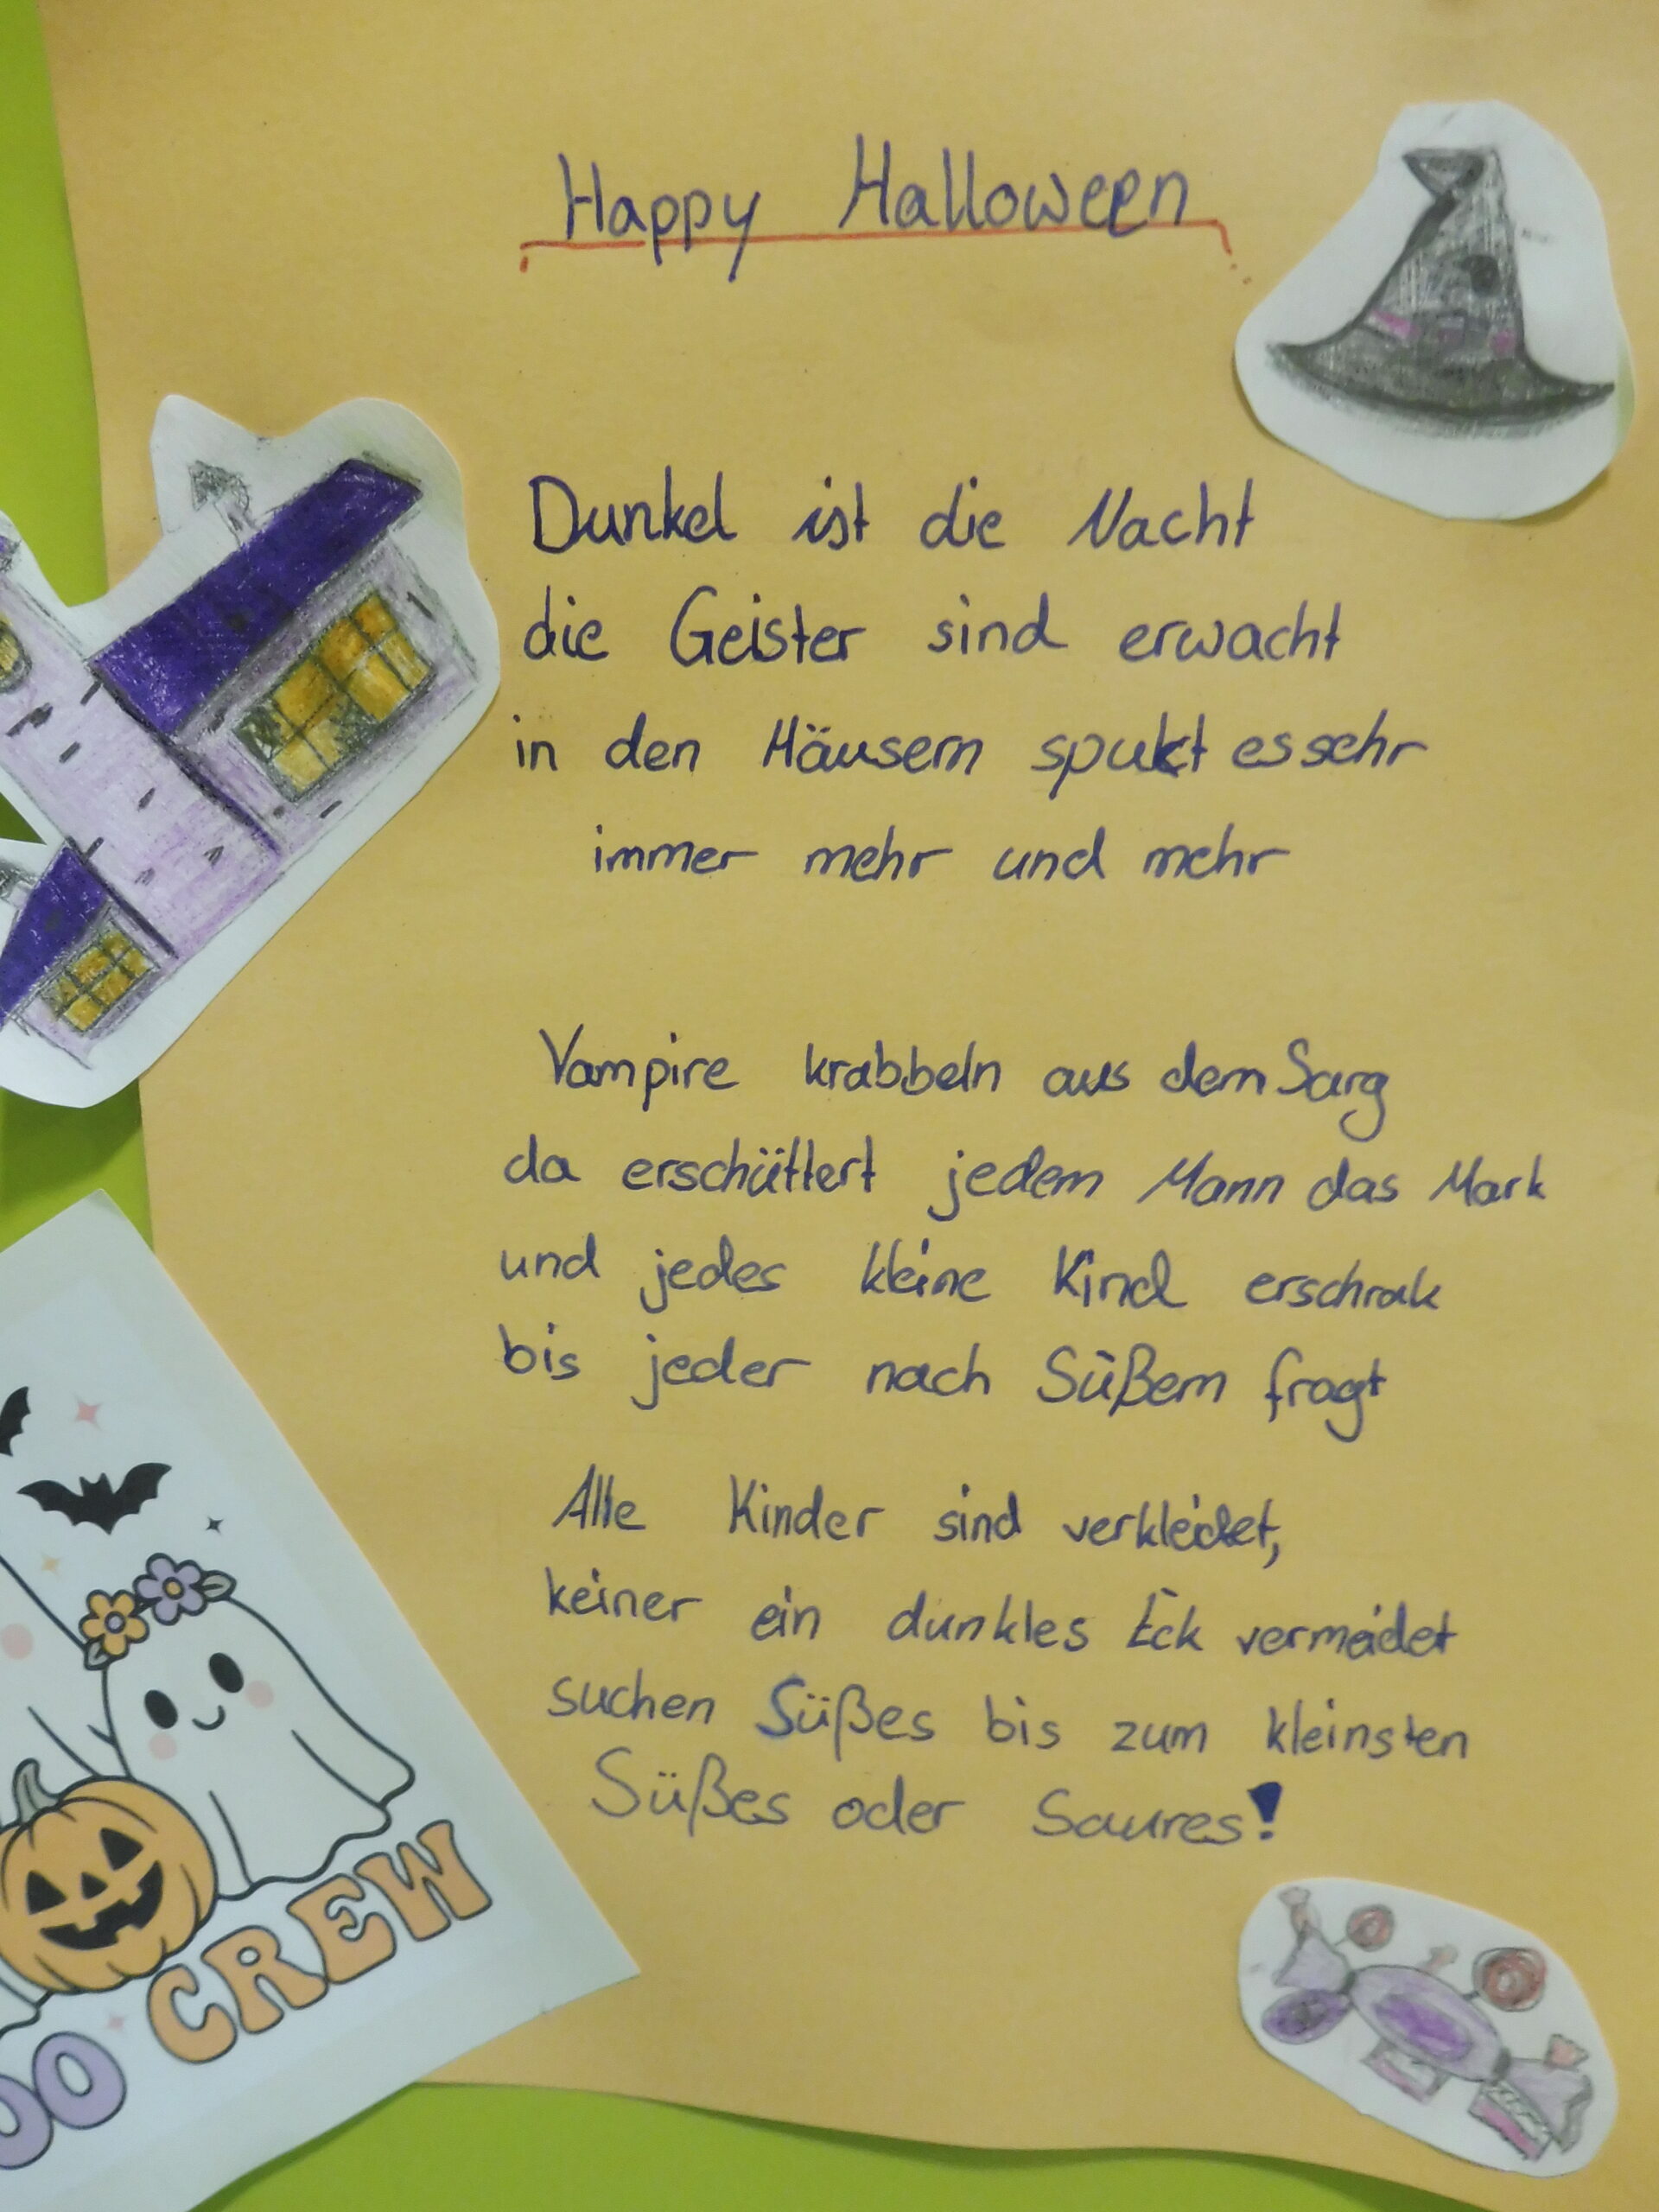 Happy Halloween
Dunkel ist die Nacht
die Geister sind erwacht
in den Häusern spukt es sehr
immer mehr und mehr
Vampire krabbeln aus dem Sarg
da erschüttert jedem Mann das Mark
und jedes kleine Kind erschrak
bis jeder nach Süßem fragt
Alle Kinder sind verkleidet,
keiner ein dunkles Eck vermeidet
suchen Süßes bis zum kleinsten
Süßes oder Saures!
OO CREW